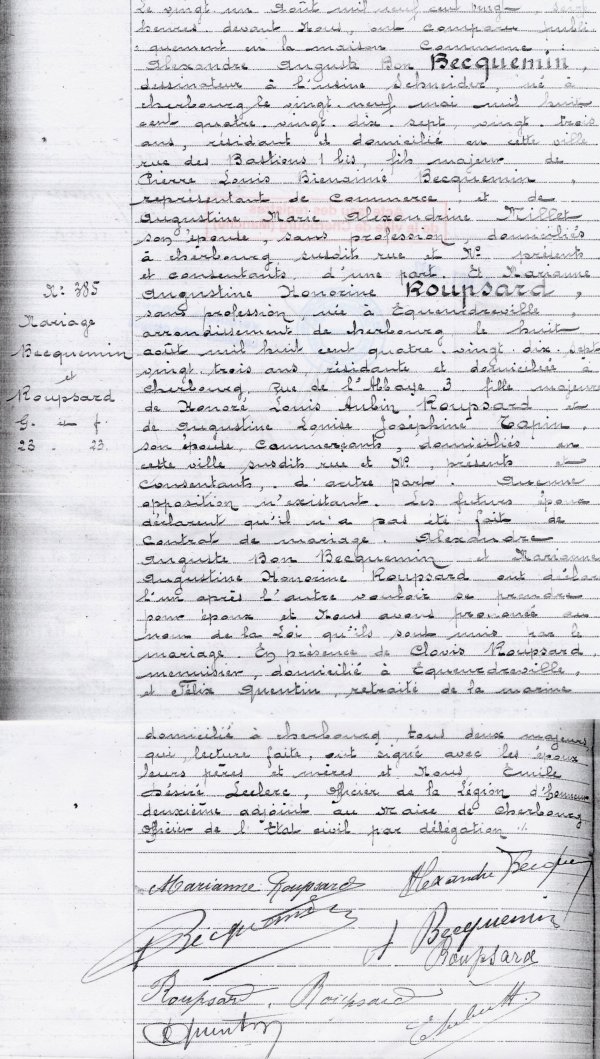 Le vingt un Août mil neuf cent vingt, seize
heures devant Nous, ont comparu publi
quement en la maison Commune :
Alexandre Auguste Bon Becquemin,
dessinateur à l'usine Schneider, né à
Cherbourg le vingt-neuf mai mil huit
cent quatre-vingt-dix-sept, vingt-trois
ans, résidant et domicilié en cette ville
rue des Bastions 1 bis, fils majeur de
Pierre Louis Bienaimé Becquemin,
représentant de commerce et de
Augustine Marie Alexandrine Millet
son épouse, sans profession, domiciliés
à Cherbourg susdit rue et N° présents
et consentants, d'une part. Et Marianne
Augustine Honorine Roupsard,
sans profession, née à Equeurdreville,
arrondissement de Cherbourg le huit
août mil huit cent quatre-vingt-dix-sept
vingt-trois ans résidante et domiciliée à
Cherbourg, rue de l'Abbaye 3 fille majeure
de Honoré Louis Aubin Roupsard et
de Augustine Louise Joséphine Tapin,
son épouse, Commerçants, domiciliés en
cette ville, susdit rue et N°, présents et
Consentants, d'autre part. Aucune
opposition n'existant. Les futurs époux
déclarent qu'il n'a pas été fait de
Contrat de mariage. Alexandre
Auguste Bon Becquemin et Marianne
Augustine Honorine Roupsard ont déclaré
l'un après l'autre vouloir se prendre
pour époux et Nous avons prononcé au
nom de la Loi qu'ils sont unis par le
mariage. En présence de Clovis Roupsard,
menuisier, domicilié à Equeurdreville,
et Félix Quentin, retraité de la marine
N° 385
Mariage
Becquemin
et
Roupsard
G. 23 - f. 23.
domicilié à Cherbourg, tous deux majeurs,
qui, lecture faite, ont signé avec les époux
leurs pères et mères et Nous Emile
Désiré Leclerc, Officier de la Légion d'honneur
deuxième adjoint au Maire de Cherbourg
Officier de l'Etat civil par délégation
Marianne Roupsard
Alexandre Becque
Becquemin
Becquemin
Roupsard
Roupsard. Roupsard
Quentin